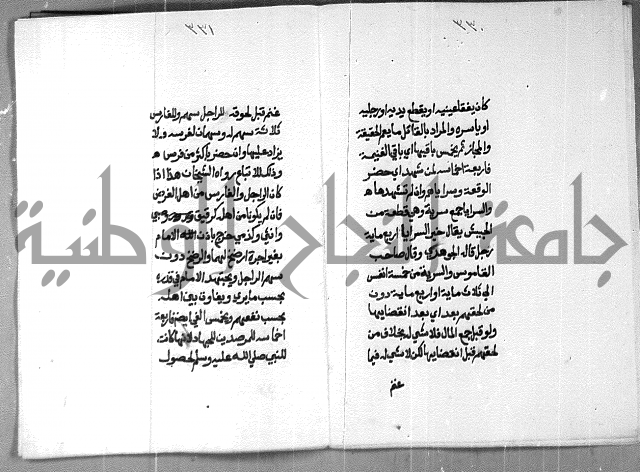 ٣٣٠
كان يفقأ عينيه او يقطع يديه او رجليه
او ياسره والمراد بالقاتل ما يعم الحقيقة
والمجاز ثم يخمس باقيها اي باقي الغنيمة
فاربعة اخماسه لمن شهد اي حضر
الوقعة وسراياهم وان لم تشهدها
والسرايا جمع سرية وهي قطعة من
الجيش يقال خير السرايا اربع ماية
رجل قاله الجوهري وقال صاحب
القاموس والسرية من خمسة انفس
الي ثلاث ماية او اربع ماية دون
من لحقهم بعد اي بعد انقضايها
ولو قبل جمع المال فلا شي له بخلاف من
لحقهم قبل انقضايها لكن لا شي له فيما
غنم
٣٣١
غنم قبل لحوقه للراجل سهم وللفارس
ثلاثة سهم له وسهمان لفرسه ولا
يزاد عليها وان حضر باكثر من فرس
وذلك للاتباع رواه الشيخان هذا اذا
كان الراجل والفارس من اهل الفرض
فان لم يكونا من اهله كرقيق وصبي
وانثي وكذمي خرج باذن الامام
بغير اجرة ارضخ لهما والرضخ دون
سهم الراجل ويجتهد الامام في قدره
بحسب ما يري ويفاوت بين اهله
بحسب نفعهم ويخمس الفي ايضا فاربعة
اخماسه للمرصدين للجهاد لانها كانت
للنبي صلي الله عليه وسلم لحصول
جامعة النجاح الوطنية